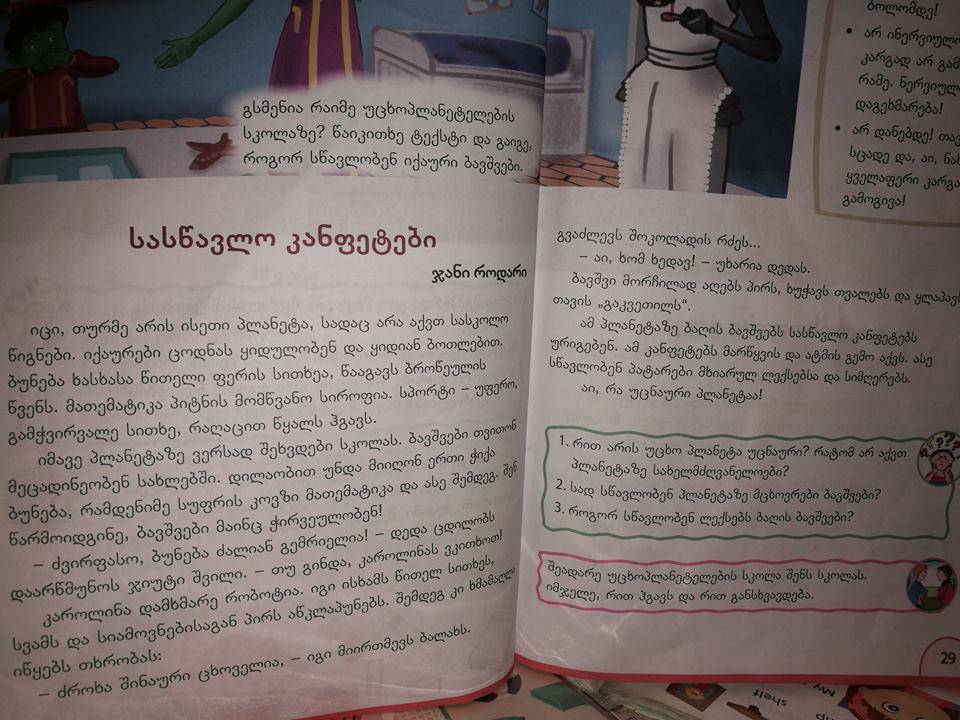 გსმენია რაიმე უცხოპლანეტელების
სკოლაზე? წაიკითხე ტექსტი და გაიგე,
როგორ სწავლობენ იქაური ბავშვები.
სასწავლო კანფეტები
ჯანი როდარი
იცი, თურმე არის ისეთი პლანეტა, სადაც არა აქვთ სასკოლო
წიგნები. იქაურები ცოდნას ყიდულობენ და ყიდიან ბოთლებით.
ბუნება ხასხასა წითელი ფერის სითხეა, წააგავს ბროწეულის
წვენს. მათემატიკა პიტნის მომწვანო სიროფია. სპორტი – უფერო,
გამჭვირვალე სითხე, რაღაცით წყალს ჰგავს.
იმავე პლანეტაზე ვერსად შეხვდები სკოლას. ბავშვები თვითონ
მეცადინეობენ სახლებში. დილაობით უნდა მიიღონ ერთი ჭიქა
ბუნება, რამდენიმე სუფრის კოვზი მათემატიკა და ასე შემდეგ. შენ
წარმოიდგინე, ბავშვები მაინც ჭირვეულობენ!
– ძვირფასო, ბუნება ძალიან გემრიელია! – დედა ცდილობს
დაარწმუნოს ჯიუტი შვილი. – თუ გინდა, კაროლინას ვკითხოთ!
კაროლინა დამხმარე რობოტია. იგი ისხამს წითელ სითხეს,
სვამს და სიამოვნებისაგან პირს აწკლაპუნებს. შემდეგ კი ხმამაღლა
იწყებს თხრობას:
– ძროხა შინაური ცხოველია, – იგი მიირთმევს ბალახს.
ბოლომდე!
• არ ინერვიულო
კარგად არ გამ
რამე. ნერვიულ
დაგეხმარება!
• არ დანებდე! თავ
სცადე და, აი, ნახ
ყველაფერი კარგა
გამოგივა!
გვაძლევს შოკოლადის რძეს...
– აი, ხომ ხედავ! – უხარია დედას.
ბავშვი მორჩილად აღებს პირს, ხუჭავს თვალებს და ყლაპავს
თავის „გაკვეთილს“.
ამ პლანეტაზე ბაღის ბავშვებს სასწავლო კანფეტებს
ურიგებენ. ამ კანფეტებს მარწყვის და ატმის გემო აქვს. ასე
სწავლობენ პატარები მხიარულ ლექსებსა და სიმღერებს.
აი, რა უცნაური პლანეტაა!
1. რით არის უცხო პლანეტა უცნაური? რატომ არ აქვთ
პლანეტაზე სახელმძღვანელოები?
2. სად სწავლობენ პლანეტაზე მცხოვრები ბავშვები?
3. როგორ სწავლობენ ლექსებს ბაღის ბავშვები?
შეადარე უცხოპლანეტელების სკოლა შენს სკოლას.
იმჯელე, რით ჰგავს და რით განსხვავდება.
29
My
shelf